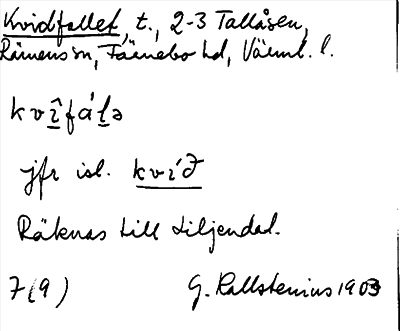 Kvidfallet, t., 2-3 Tallåsen,
Rämens sn, Färnebo hd, Värml. l.
kvîfáḷə
jfr isl. kvið
Räknas till Liljendal.
7(9) G. Kallstenius 1903